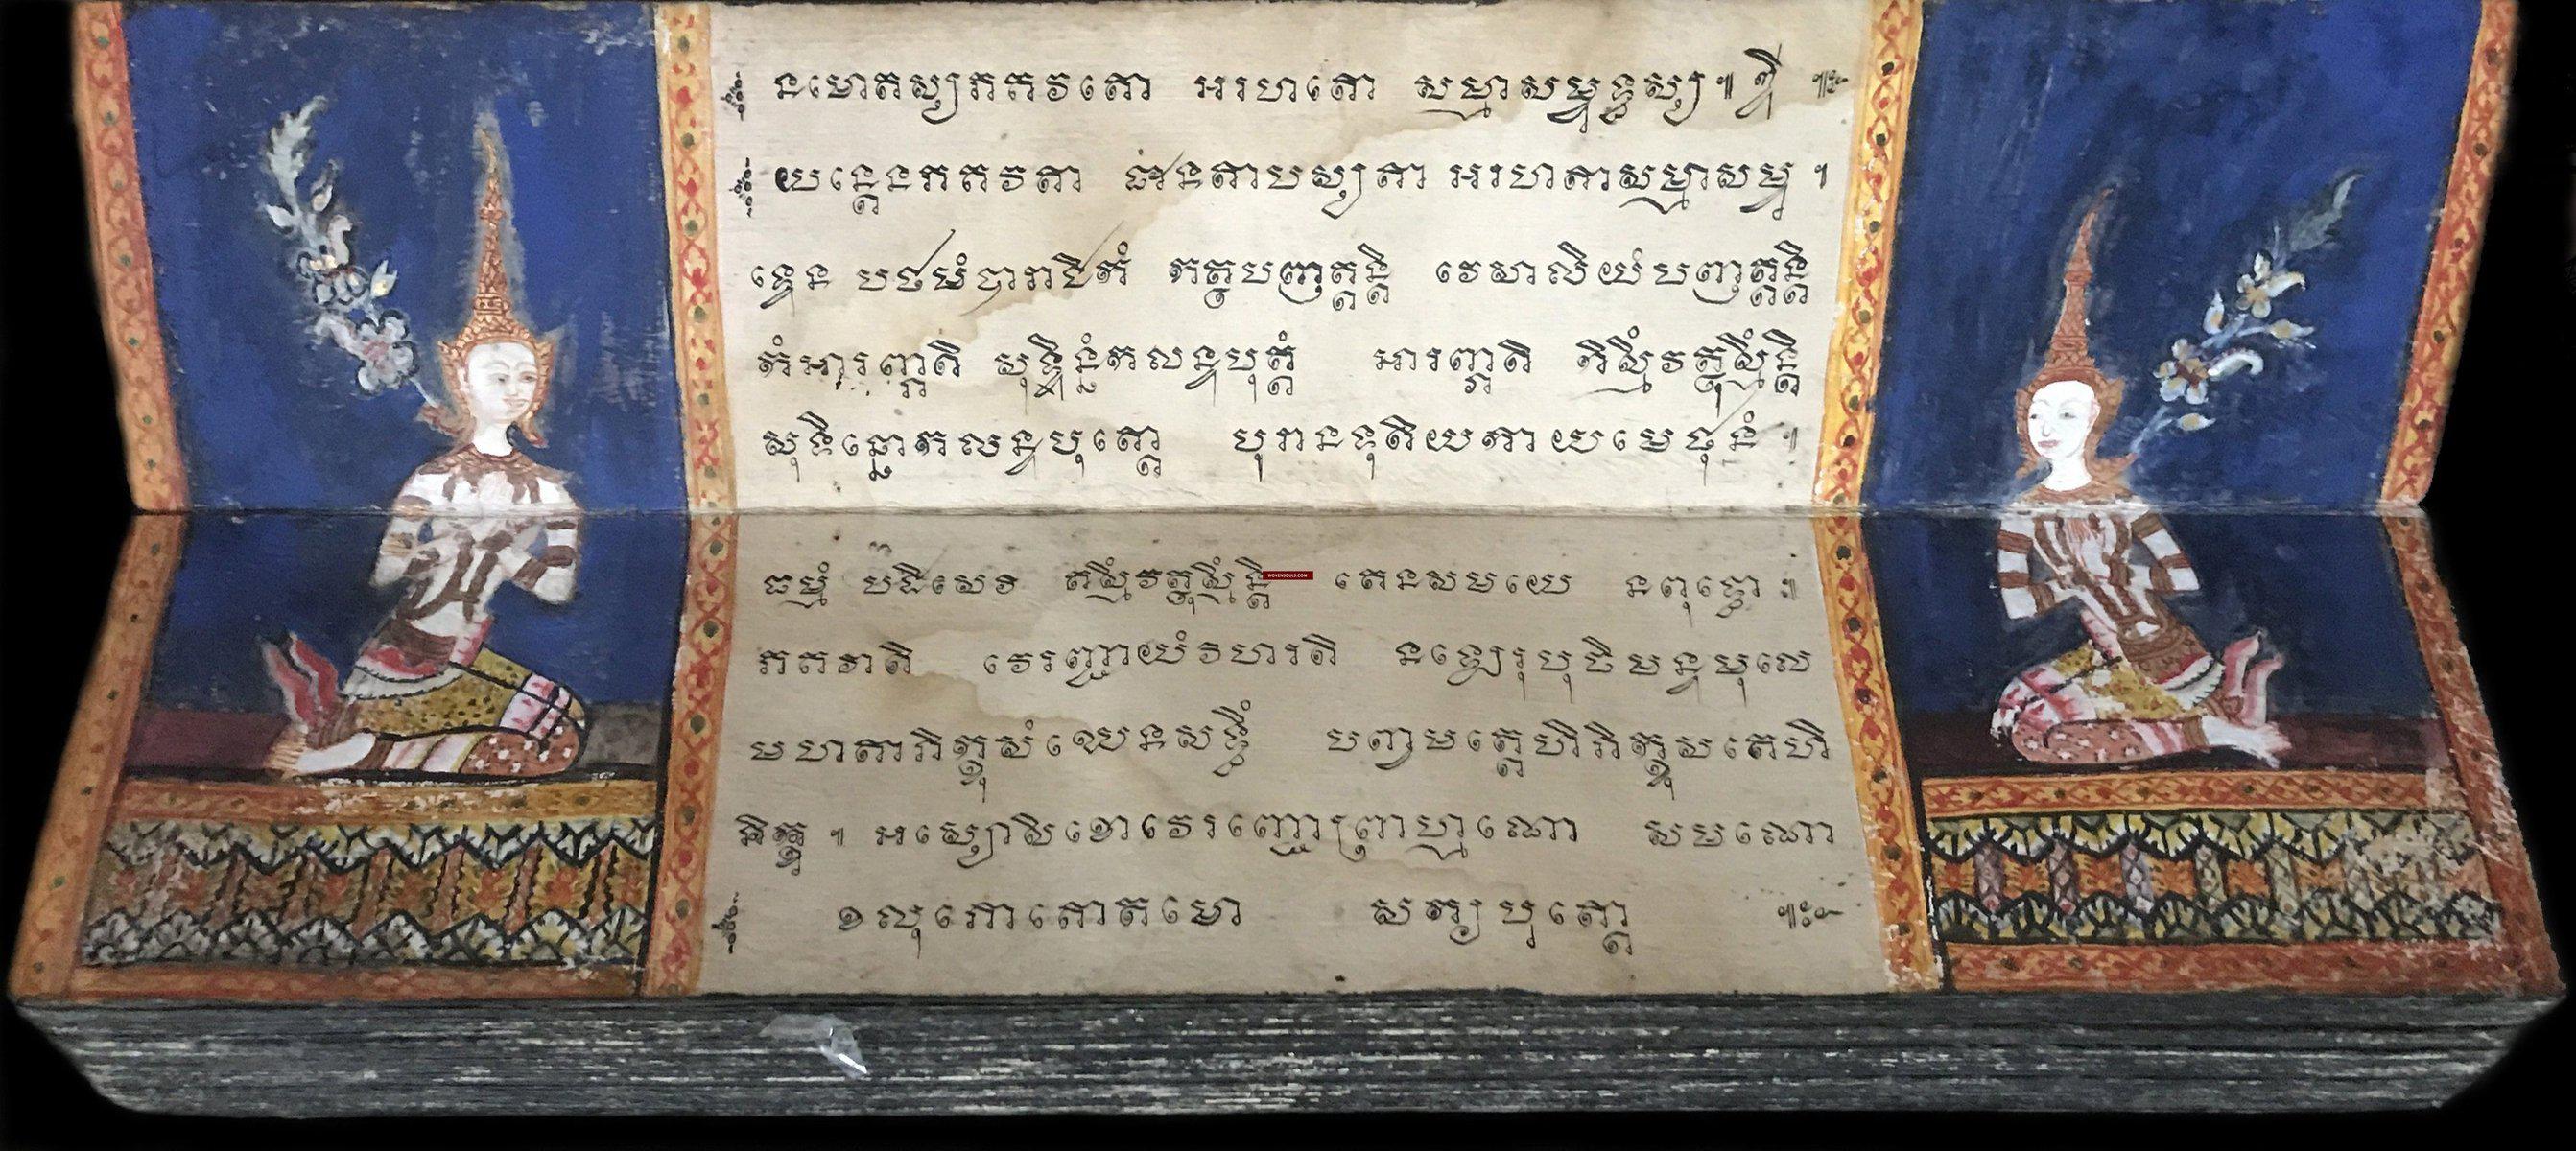 នមោតស្សភគវតោ អរហតោ សម្មាសម្ពុទ្ធស្ស៕
យន្តេនភគវតា ជានតាបស្សតា អរហតាសម្មាសម្ពុ៕
ទ្ធេន បឋមំបារាជិកំ កត្ថបញ្ញត្តន្តិ វេសាលិយំបញ្ញត្តន្តិ
កំអារញ្ភតិ សុទិន្នំកលន្ទបុត្តំ អារញ្ភតិ កិស្មឹវត្ថុស្មឹន្តិ
សុទិន្នោកលន្ទបុត្តោ បុរាណទុតិយកាយមេថុនំ៕
ធម្មំ បដិសេវ តស្មឹវត្ថុស្មឹន្តិ តេនសមយេ នពុទ្ធោ៕
ភគវាតិ វេរញ្ជាយំវិហរតិ នឡេរុបុចិមន្ទមុលេ
មហតាភិក្ខុសំឃេនសទ្ធឹ បញ្ចមត្តេហិភិក្ខុសតេហិ
ភិក្ខុ៕ អស្សោសិខោវេរញ្ជោព្រាហ្មណោ សមណោ
ខលុភោគោតមោ សក្យបុត្តោ ៕
WOVENSOULS.COM